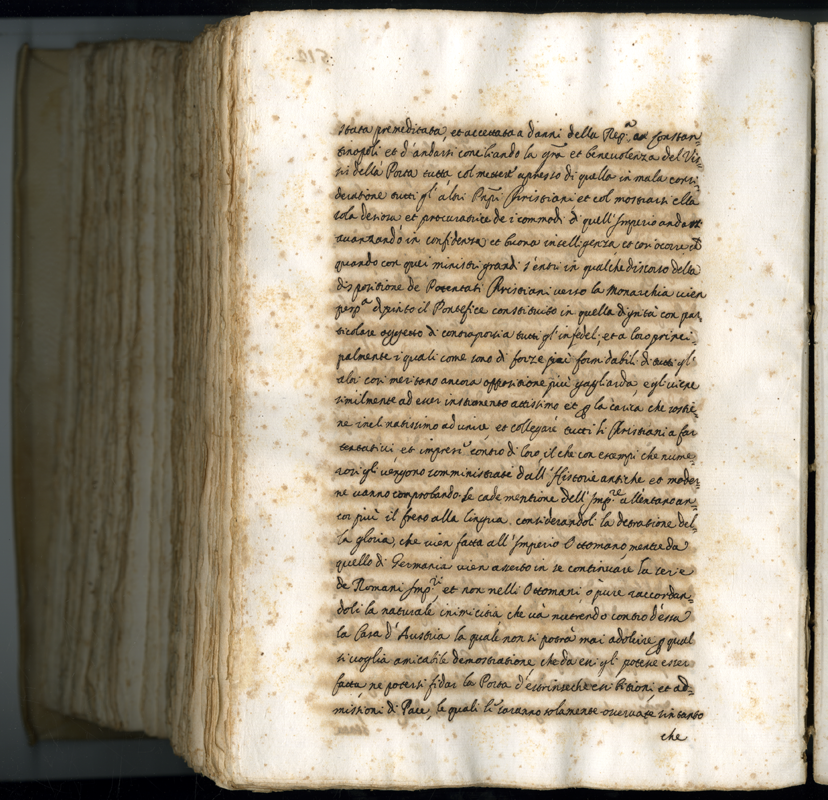 stata premeditata, et accettata a danni della Rep.ca ad Constan=
tinopoli et d'andarsi conciliando la gra et benevolenza del Vis=
sì della Porta tutta col metter apresso di quella in mala consi=
deratione tutti gl'altri Prpi Christiani et col mostrarsi ella
sola desiosa et procuratrice de i commodi di quell'Imperio andar
avanzando in confidenza et buona intelligenza et così ocorre ch
quando con quei ministri grandi s'entri in qualche discorso della
dispositione de Potentati Christiani verso la Monarchia vien
dipinto il Pontefice constituito in quella dignità con par=
ticolare oggetto di contraporsi a tutti gl'infedeli et a loro princi=
palmente i quali come sono di forze più formidabili di tutti gl'
altri così meritano ancora oppositione più gagliarda, e gl'viene
similmente ad esser instromento attissimo et p la carica che sostie=
ne inclinatissimo ad unire, et collegare tutti li Christiani a far
tentativi, et imprese contro di loro, il che con esempi che nume=
rosi gli vengono somministrati dall'Historie antiche et moder=
ne vanno comprobando. Se cade mentione dell'Imp.re allentano an=
cor più il freno alla lingua. considerandoli la detratione del=
la gloria, che vien fatta all'Imperio Ottomano mentre da
quello di Germania vien asserto in se continuare la serie
de Romani Imp.ri, et non nelli Ottomani o pure raccordan=
doli la naturale inimicitia che và nutrendo contro d'essa
la Casa d'Austria la quale non si potrà mai adolcire p qual
si voglia amicabile demostratione che da essi gl potesse esser
fatta ne potersi fidar la Porta d'estrinseche esibitioni, et ad=
missioni di Pace, le quali li saranno solamente osservate in tanto
che